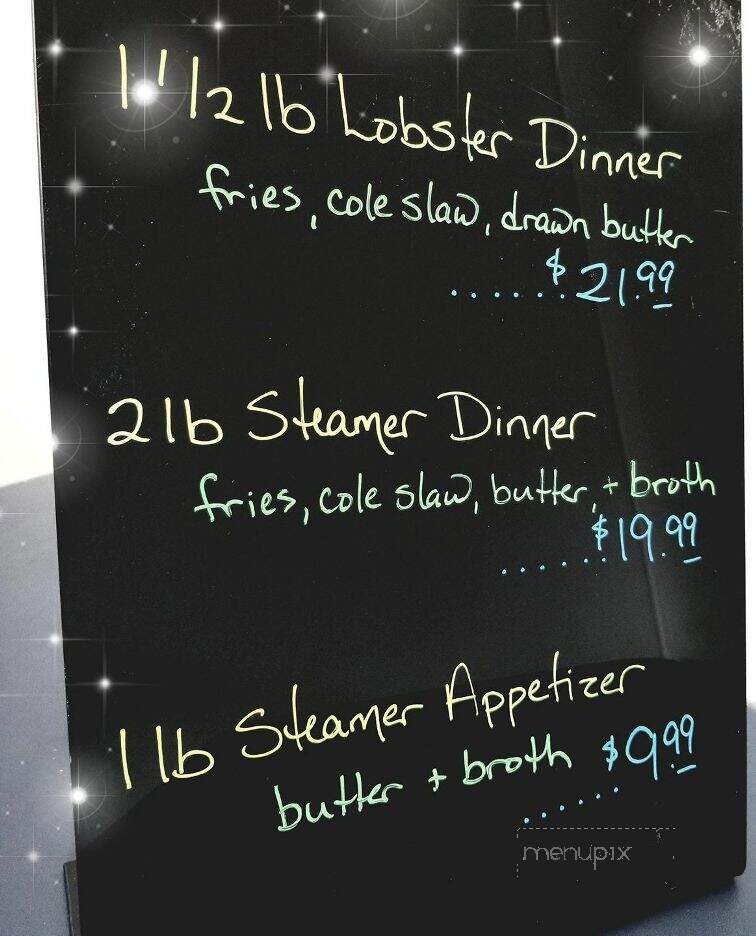 1 1/2 lb Lobster Dinner
fries, cole slaw, drawn butter
......$21.99
2 lb Steamer Dinner
fries, cole slaw, butter, + broth
......$19.99
1 lb Steamer Appetizer
butter + broth $9.99
......
menupix